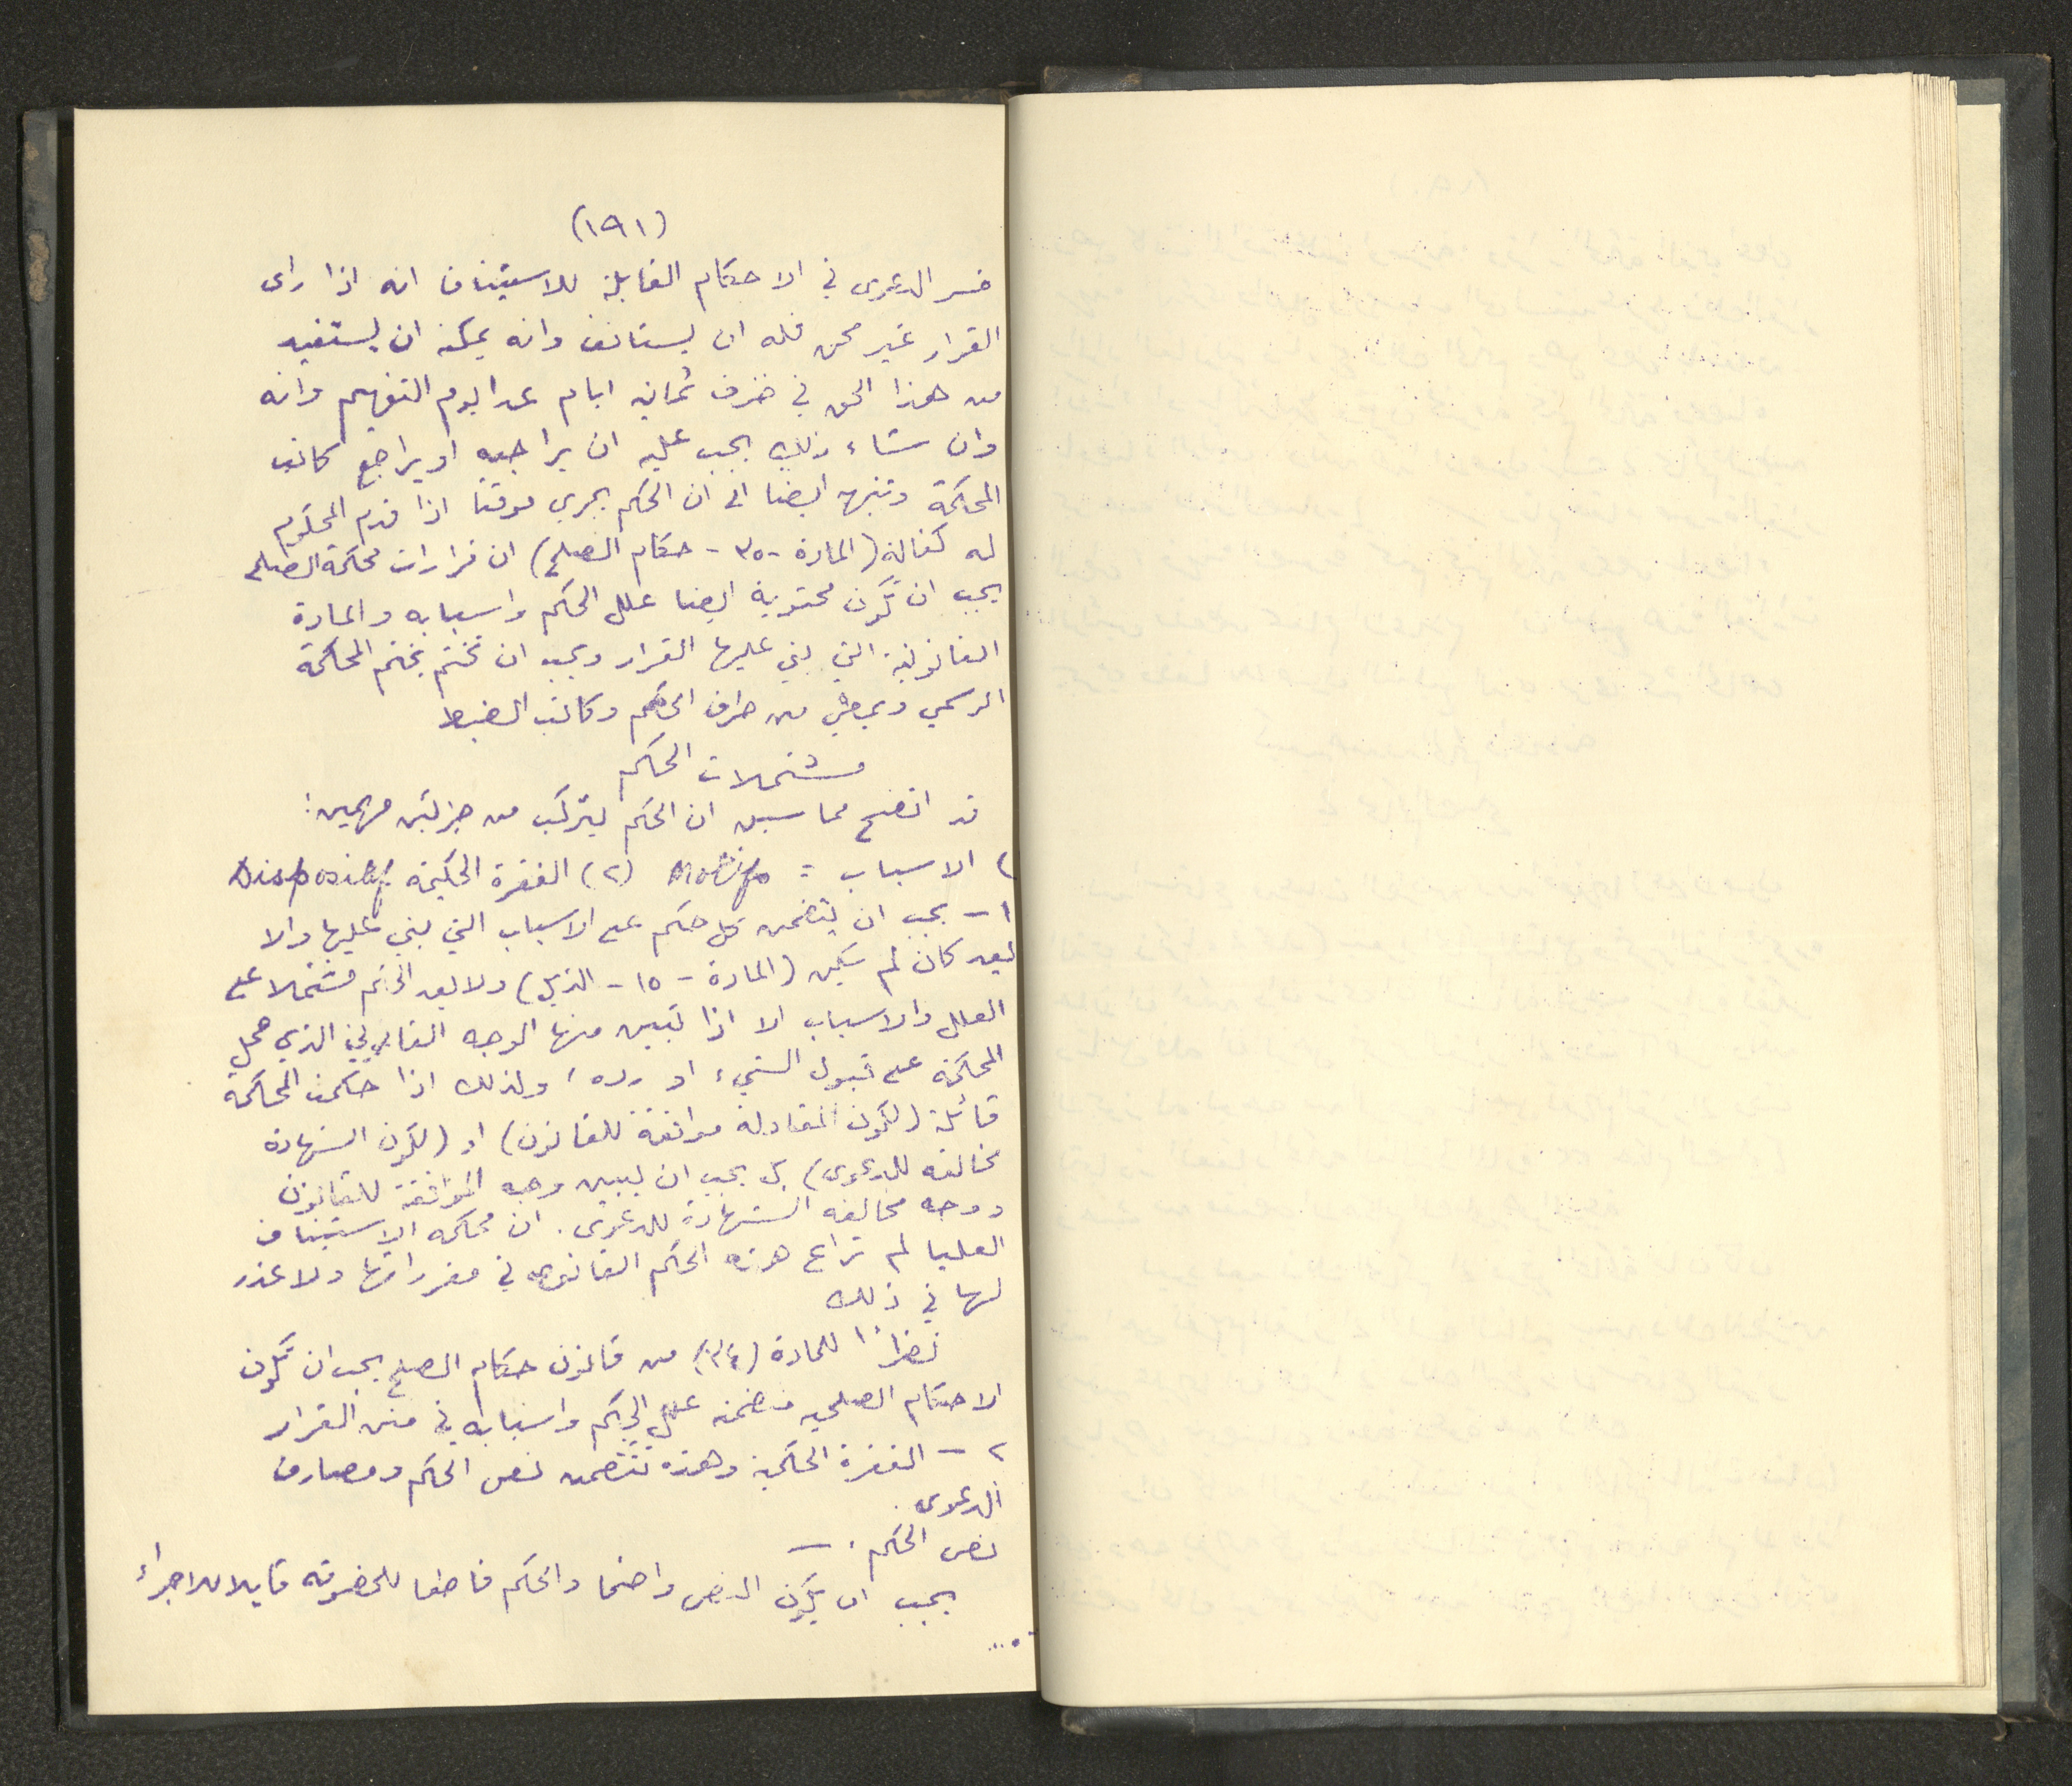 (١٩١)
خسر الدعوى في الاحكام القابلة للاستيناف انه اذا راى
القرار غير محق فله ان يستانف وانه يمكنه ان يستفيد
من هذا الحق في ظرف ثمانية ايام عدا يوم التفهيم وانه
وان شاء ذلك يجب عليه ان يراجعه او يراجع كاتب
المحكمة وتنبه ايضا الى ان الحكم يجري موقتا اذا قدم المحكوم
له كفالة (المادة - ٣٥ - حكام الصلح) ان قرارات محكمة الصلح
يجب ان تكون محتوية ايضا علل الحكم واسبابه والمادة
القانونية التي بني عليها القرار ويجب ان تختم بختم المحكمة
الرسمي ويمضى من طرف الحاكم وكاتب الضبط
مشتملات الحكم
قد اتضح مما سبق ان الحكم يتركب من جزئين مهمين:
) الاسباب = Motifs (٢) الفقرة الحكمية Dispositif
١ - يجب ان يتضمن كل حكم على الاسباب التي بني عليها والا
يعد كان لم يكن (المادة - ١٥ - الذيل) ولا يعد الحكم مشتملا على
العلل والاسباب الا اذا تبين منها الوجه القانوني الذي حمل
المحكمة على قبول الشيء او رده، ولذلك اذا حكمت المحكمة
قائلة (لكون المقاولة موافقة للقانون) او (لكون الشهادة
مخالفه للدعوى) بل يجب ان يبين وجه الموافقة للقانون
ووجه مخالفه الشهادة للدعوى. ان محكمه الاستيناف
العليا لم تراع هذه الحكم القانوني في مقرراتها ولا عذر
لها في ذلك
نظرا للمادة (٣٤) من قانون حكام الصلح يجب ان تكون
الاحكام الصلحيه متضمنه علل الحكم واسبابه في متن القرار
٢ - الفقرة الحكمية وهذه تتضمن نص الحكم ومصارف
الدعوى.
نص الحكم . -
يجب ان يكون النص واضحا والحكم قاطعا للخصومه قابلا للاجراء